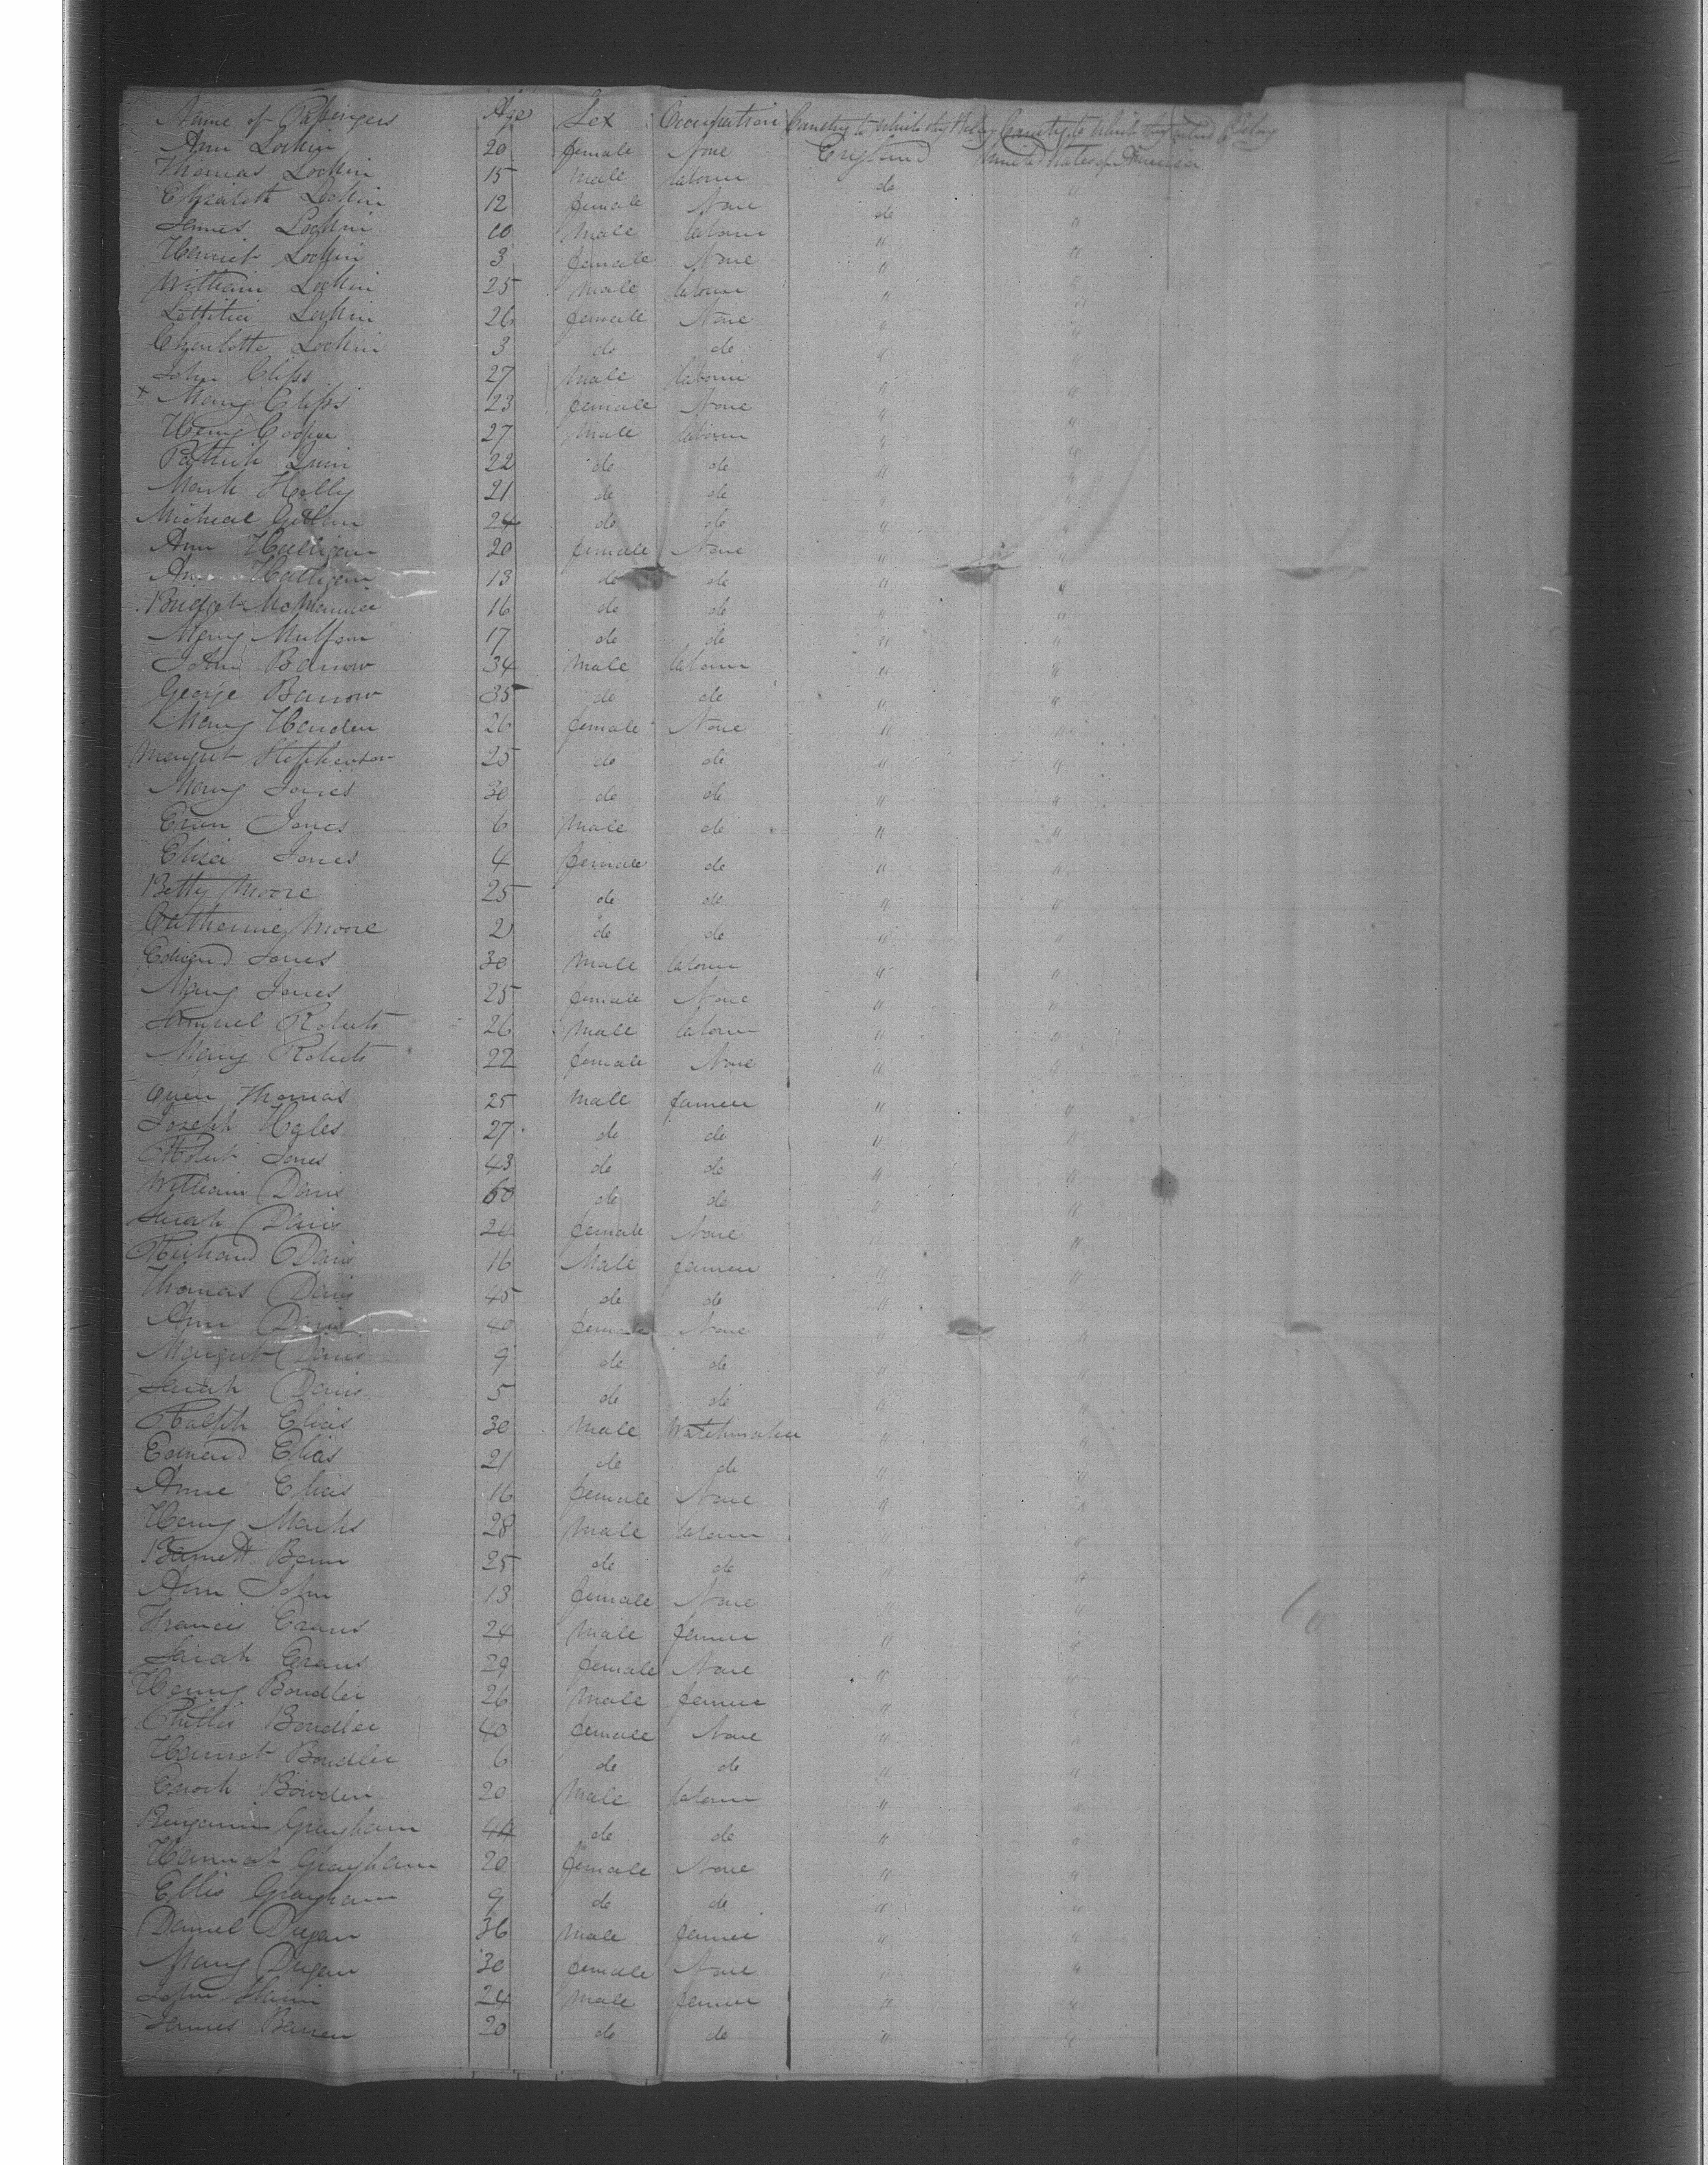 Name of Passengers Age Sex Occupation Country to which they Belong Country to which they intend
Ann Lockin 20 female None England United States of America
Thomas Lockin 15 Male labourer do "
Elizabeth Lockin 12 female None do "
James Lockin 10 Male labourer " "
Harriet Lockin 3 female None " "
William Lockin 25 Male labourer " "
Lettitia Lockin 26 female None " "
Charlotte Lockin 3 do do " "
John Cliffs 27 Male labourer " "
+ Mary Cliffs 23 female None " "
Henry Cooper 27 Male labourer " "
Patrick Quin 22 do do " "
Mark Holly 21 do do " "
Micheal 24 do do " "
Ann Halligan 20 female None " "
Ann Halligan 13 do do " "
Bridget 16 do do " "
Mary 17 do do " "
John Barrow 34 Male labourer " "
George Barrow 35 do do " "
Mary 26 female None " "
Margret Stephenson 25 do do " "
Mary Jones 30 do do " "
Evan Jones 6 Male do " "
Eliza Jones 4 female do " "
Betty Moore 25 do do " "
Catherine Moore 2 do do " "
Edward Jones 30 Male labourer " "
Mary Jones 25 female None " "
Samuel Roberts 26 Male labourer " "
Mary Roberts 22 female None " "
Owen Thomas 25 Male farmer " "
Joseph Hales 27 do do " "
Robert Jones 43 do do " "
William Davis 60 do do " "
Sarah Davis 24 female None " "
Richard Davis 16 Male farmer " "
Thomas Davis 45 do do " "
Ann Davis 40 female None " "
Margret Davis 9 do do " "
Sarah Davis 5 do do " "
Ralph Elias 30 Male Watchmaker " "
Edward Elias 21 do do " "
Anne Elias 16 female None " "
Henry Marks 28 Male labourer " "
Barnett Benn 25 do do " "
Ann John 13 female None " "
Francis Evans 24 Male farmer " "
Sarah Evans 29 female None " "
Henry Boudler 26 Male farmer " "
Phillis Boudler 40 female None " "
Harriet Boudler 6 do do " "
Enoch Bowden 20 Male labourer " "
Benjamin Grayham 44 do do " "
Hannah Grayham 20 female None " "
Ellis Grayham 9 do do " "
Daniel Dugan 36 Male farmer " "
Mary Dugan 30 female None " "
John 24 Male farmer " "
James 20 do do " "